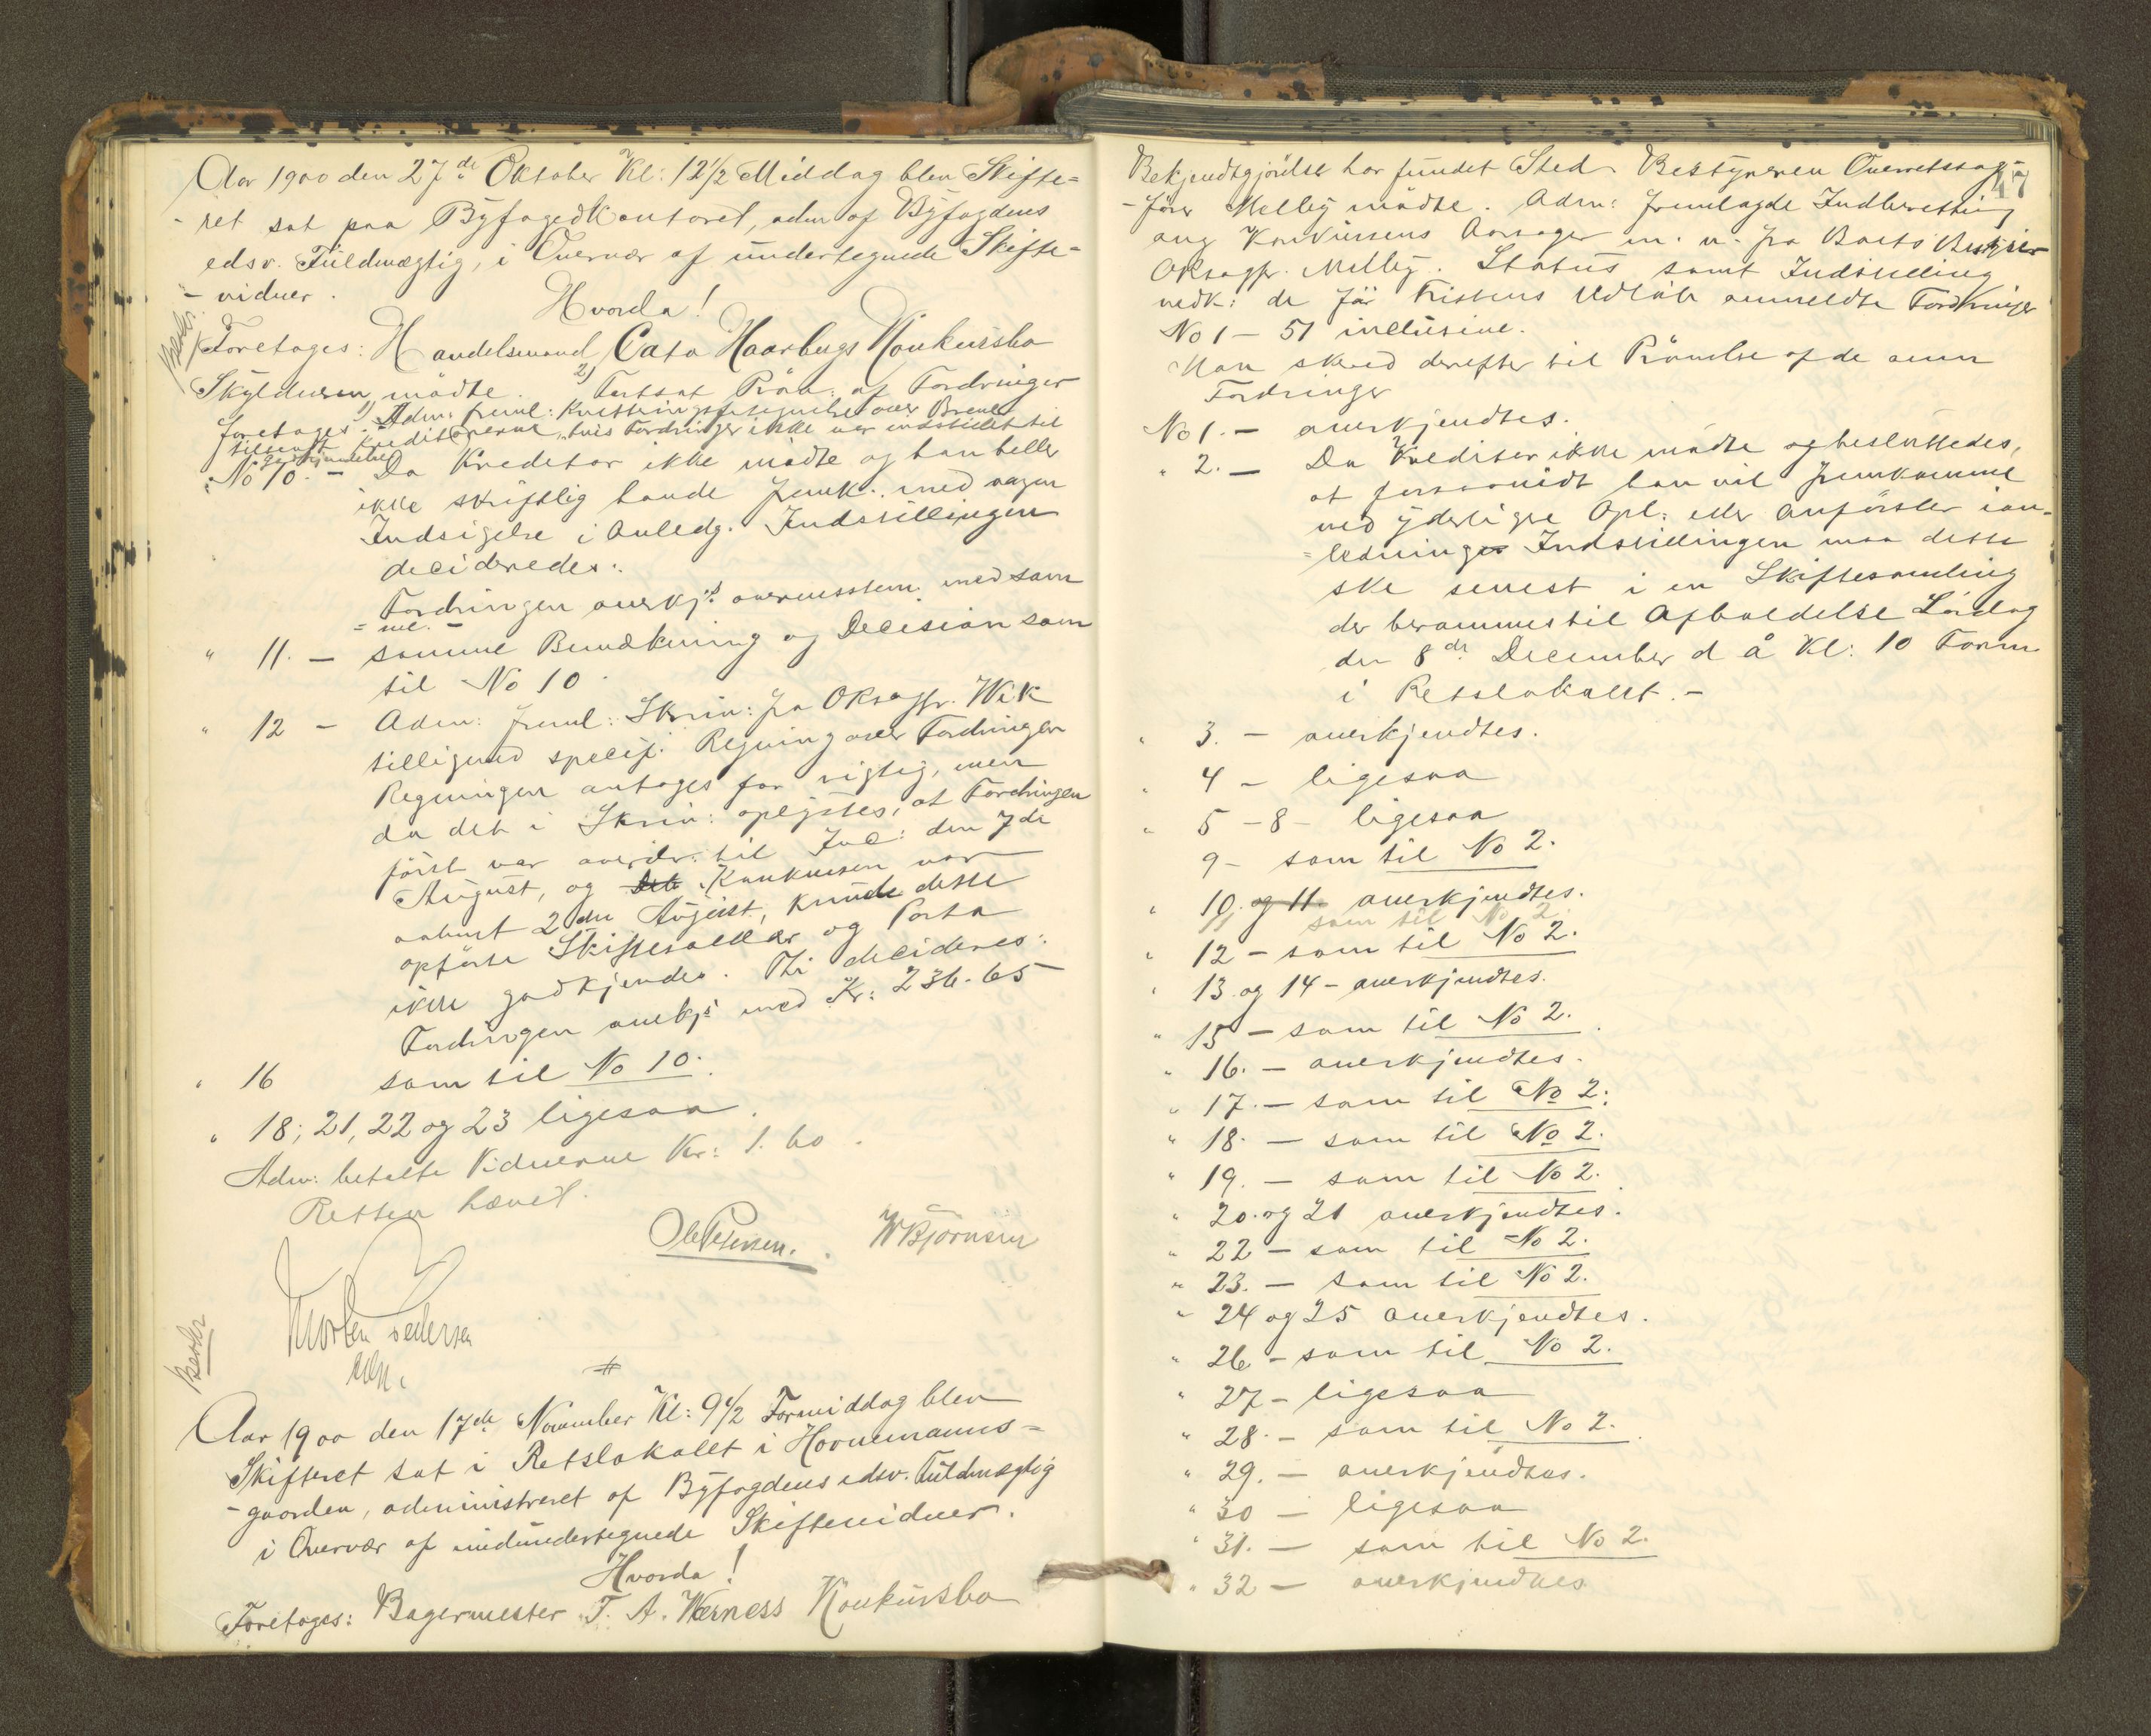 Aar 1900 den 27de Oktober Kl: 12 1/2 Middag blev Skifte=
-ret sat paa Byfogedkontoret, adm af Byfogdens
edsv. Fuldmægtig, i Overvær af undertegnede Skifte=
-vidner.
Hvorda!
Beskr.
Foretoges: Handelsmand Cato Haarbergs Konkursbo
Skyldneren mødte. 2) Fortsat Prøv: af Fordringer
foretoges. 1) Adm: freml: Kvitteringsfortegnelse over Breve
tilsendt Kreditorerne, hvis Fordringer ikke var indstillet til
godkjendelse
No 10. - Da Kreditor ikke mødte og han heller
ikke skriftlig havde fremk. med nogen
Indsigelse i Anledg. Indstillingen
decideredes:
Fordringen anerkjs. overensstem. med sam
=me. -
" 11. - samme Bemærkning og Decision som
til No 10.
" 12 - Adm: freml: Skriv: fra OKrsagfr. Wik
tilligemed specif. Regning over Fordringen
Regningen antages for rigtig, men
da det i Skriv: oplystes, at Fordringen
først var overdr. til Inc: den 7de
August, og Konkursen var
aabnet 2den August, kunde dette
opførte Skiftesalær og Porto
ikke godkjendes. Thi decideres:
Fordringen anerkjs med Kr: 236.65
" 16 som til No 10.
" 18; 21, 22 og 23 ligesaa.
Adm: betalte Vidnerne Kr: 1.60.
Retten hævet.
Ole Petersen. W Bjørnsen
Morten Pedersen
Beskr
#
Aar 1900 den 17de November Kl: 9 1/2 Formiddag blev
Skifteret sat i Retslokallet i Hornemanns=
-gaarden, administreret af Byfogdens edsv. Fuldmægtig
i Overvær af medundertegnede Skiftevidner.
Hvorda!
Foretoges: Bagermester T. A. Werness Konkursbo
47
Bekjendtgjørelse har fundet Sted. Bestyreren Overretssag-
-fører Melbÿ mødte. Adm: fremlagde Indberetning
ang Konkursens Aarsager m. v. fra Boets Bestyrer
OKrsagfr. Melbÿ. Status samt Indstilling
vedk: de før Fristens Udløb anmeldte Fordringer
No 1 - 51 inclusive.
Man skred derefter til Prøvelse af de anm
Fordringer
No 1. - anerkjendtes.
" 2. - Da Kreditor ikke mødte og besluttedes,
at forsaavidt han vil fremkomme
med yderligere Opl: eller Anførsler i an-
=ledning Indstillingen maa dette
ske senest i en Skiftesamling
der berammes til Afholdelse Lørdag
den 8de December d å Kl: 10 Form
i Retslokallet. -
" 3. - anerkjendtes.
" 4 - ligesaa
" 5 - 8 - ligesaa
9 - som til No 2.
" 10. og 11. anerkjendtes.
11 som til No 2.
" 12 - som til No 2.
" 13 og 14 - anerkjendtes.
" 15 - som til No 2.
" 16. - anerkjendtes.
" 17. - som til No 2.
" 18. - som til No 2.
" 19. - som til No 2.
" 20. og 21 anerkjendtes.
" 22 - som til No 2.
" 23. - som til No 2.
" 24 og 25 anerkjendtes.
" 26 - som til No 2.
" 27 - ligesaa
" 28. - som til No 2.
" 29. - anerkjendtes.
" 30 - ligesaa
" 31. - som til No 2.
" 32 - anerkjendtes